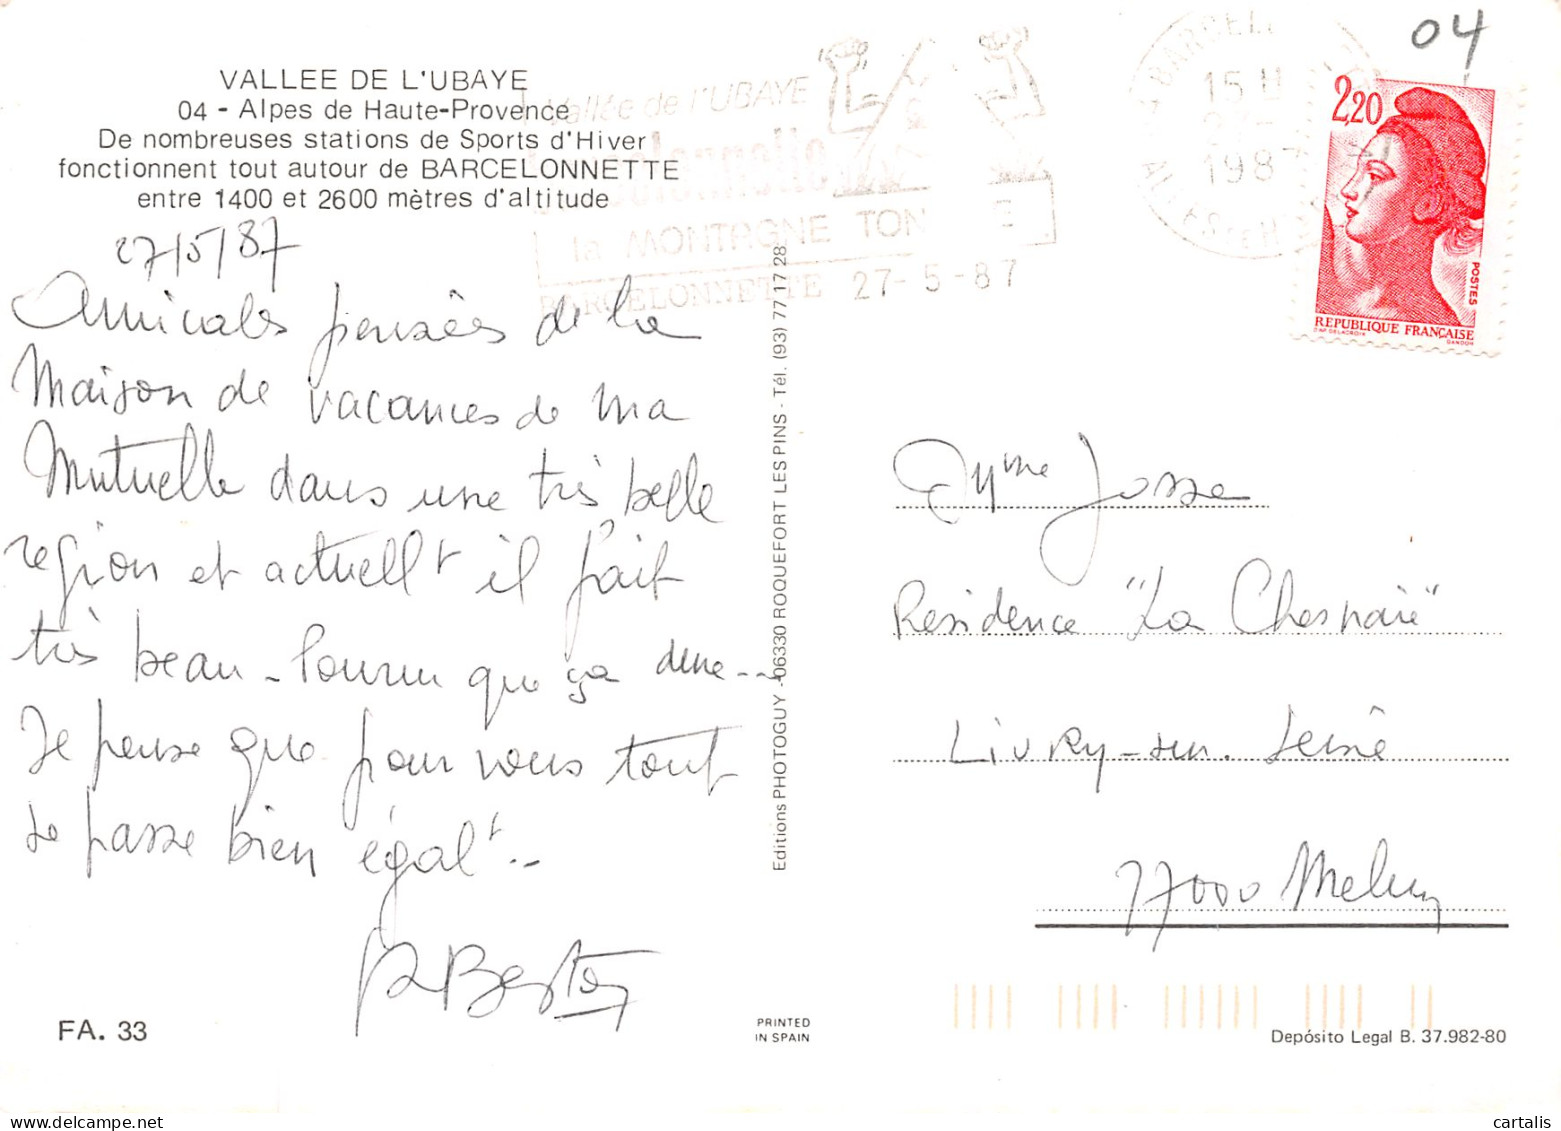 VALLEE DE L'UBAYE
04 - Alpes de Haute-Provence
De nombreuses stations de Sports d'Hiver
fonctionnent tout autour de BARCELONNETTE
entre 1400 et 2600 mètres d'altitude
27/5/87
Amicales pensées de la
Maison de vacances de ma
Mutuelle dans une très belle
region et actuellt il fait
très beau - Pourvu que ça dure...
Je pense que pour vous tout
se passe bien égalt..
FA. 33
Vallée de l'UBAYE
la MONTAGNE TON
BARCELONNETTE 27-5-87
15 H
27-
198
Editions PHOTOGUY - 06330 ROQUEFORT LES PINS - Tél. (93) 77 17 28
PRINTED
IN SPAIN
04
2,20
POSTES
REPUBLIQUE FRANÇAISE
D'AP. DELACROIX
GANDON
Josse
Residence "La Chesnaie"
Livry-sur-Seine
77000 Melun
Depósito Legal B. 37.982-80
cartalis